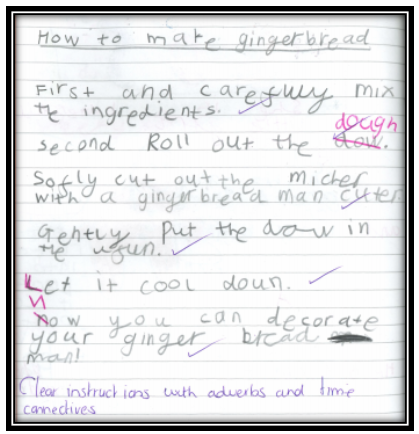 How to make gingerbread
First and carefuly mix
the ingredients.
dough
second Roll out the dow.
Softly cut out the micher
with a gingerbread man cuter
Gently Put the dow in
the ufun.
Let it cool doun.
Now you can decorate
your ginger bread
man!
Clear instructions with adverbs and time
connectives